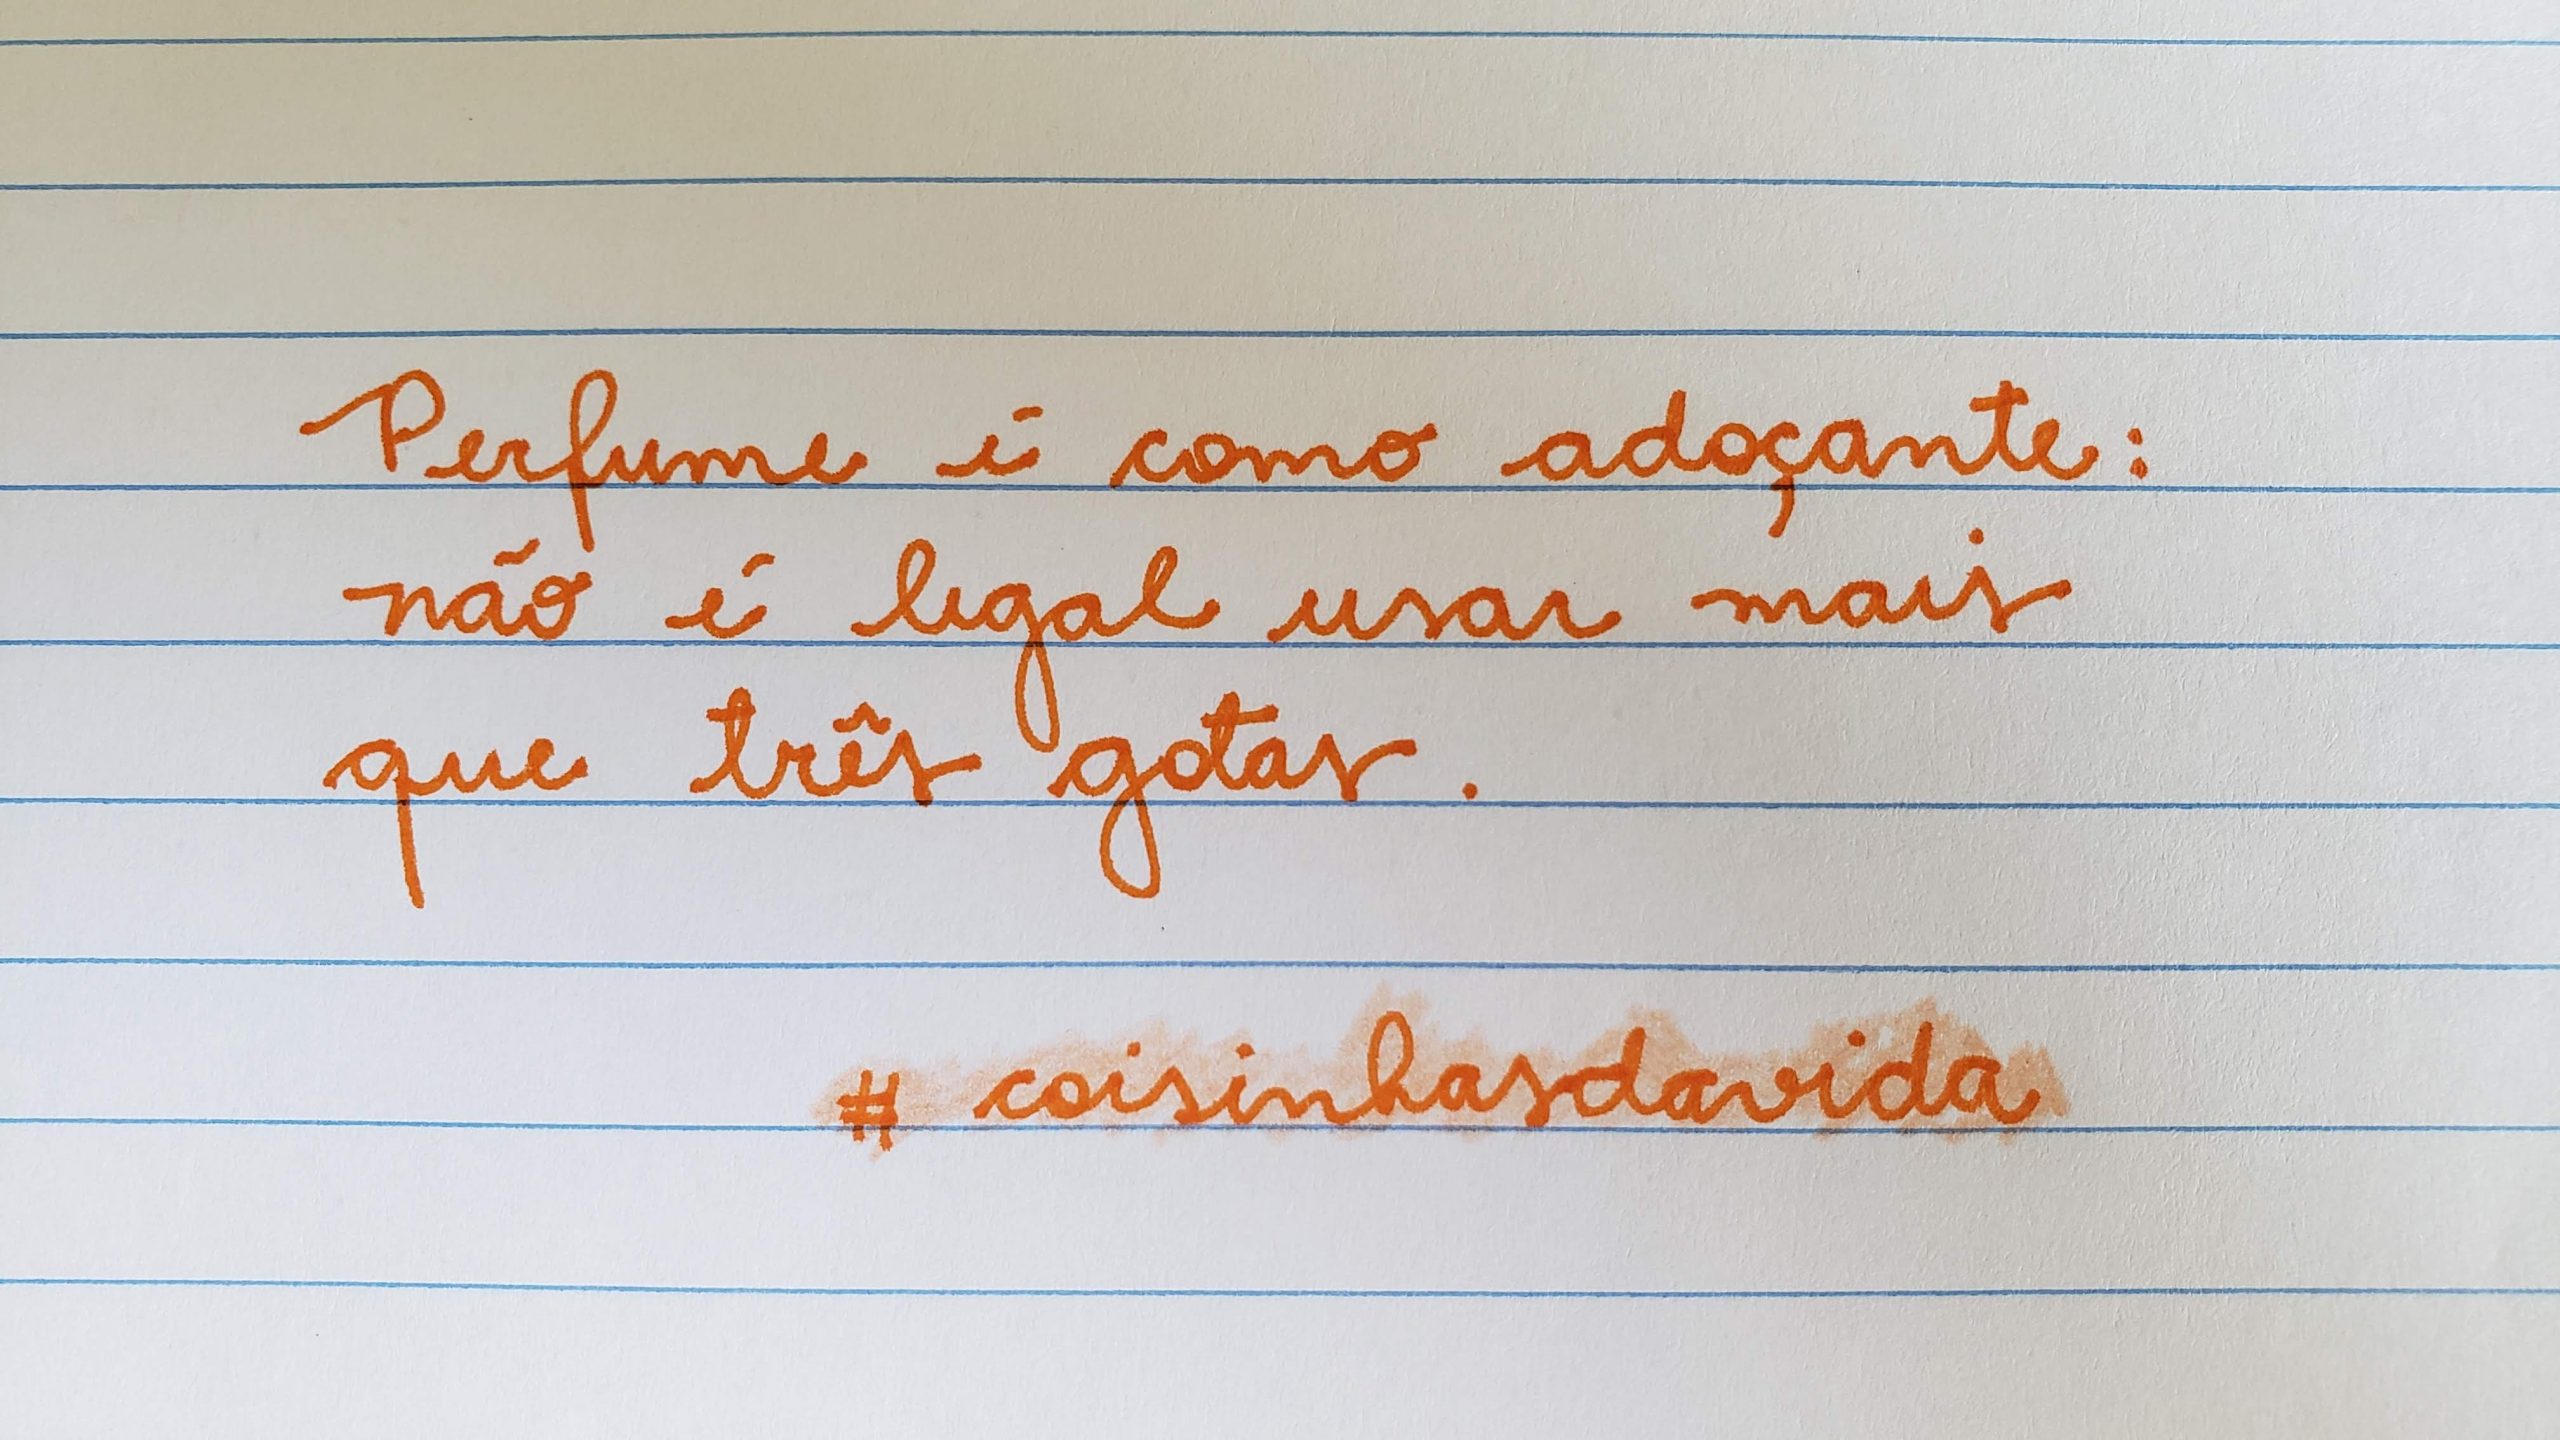 Perfume é como adoçante:
não é legal usar mais
que três gotas.
# coisinhasdavida